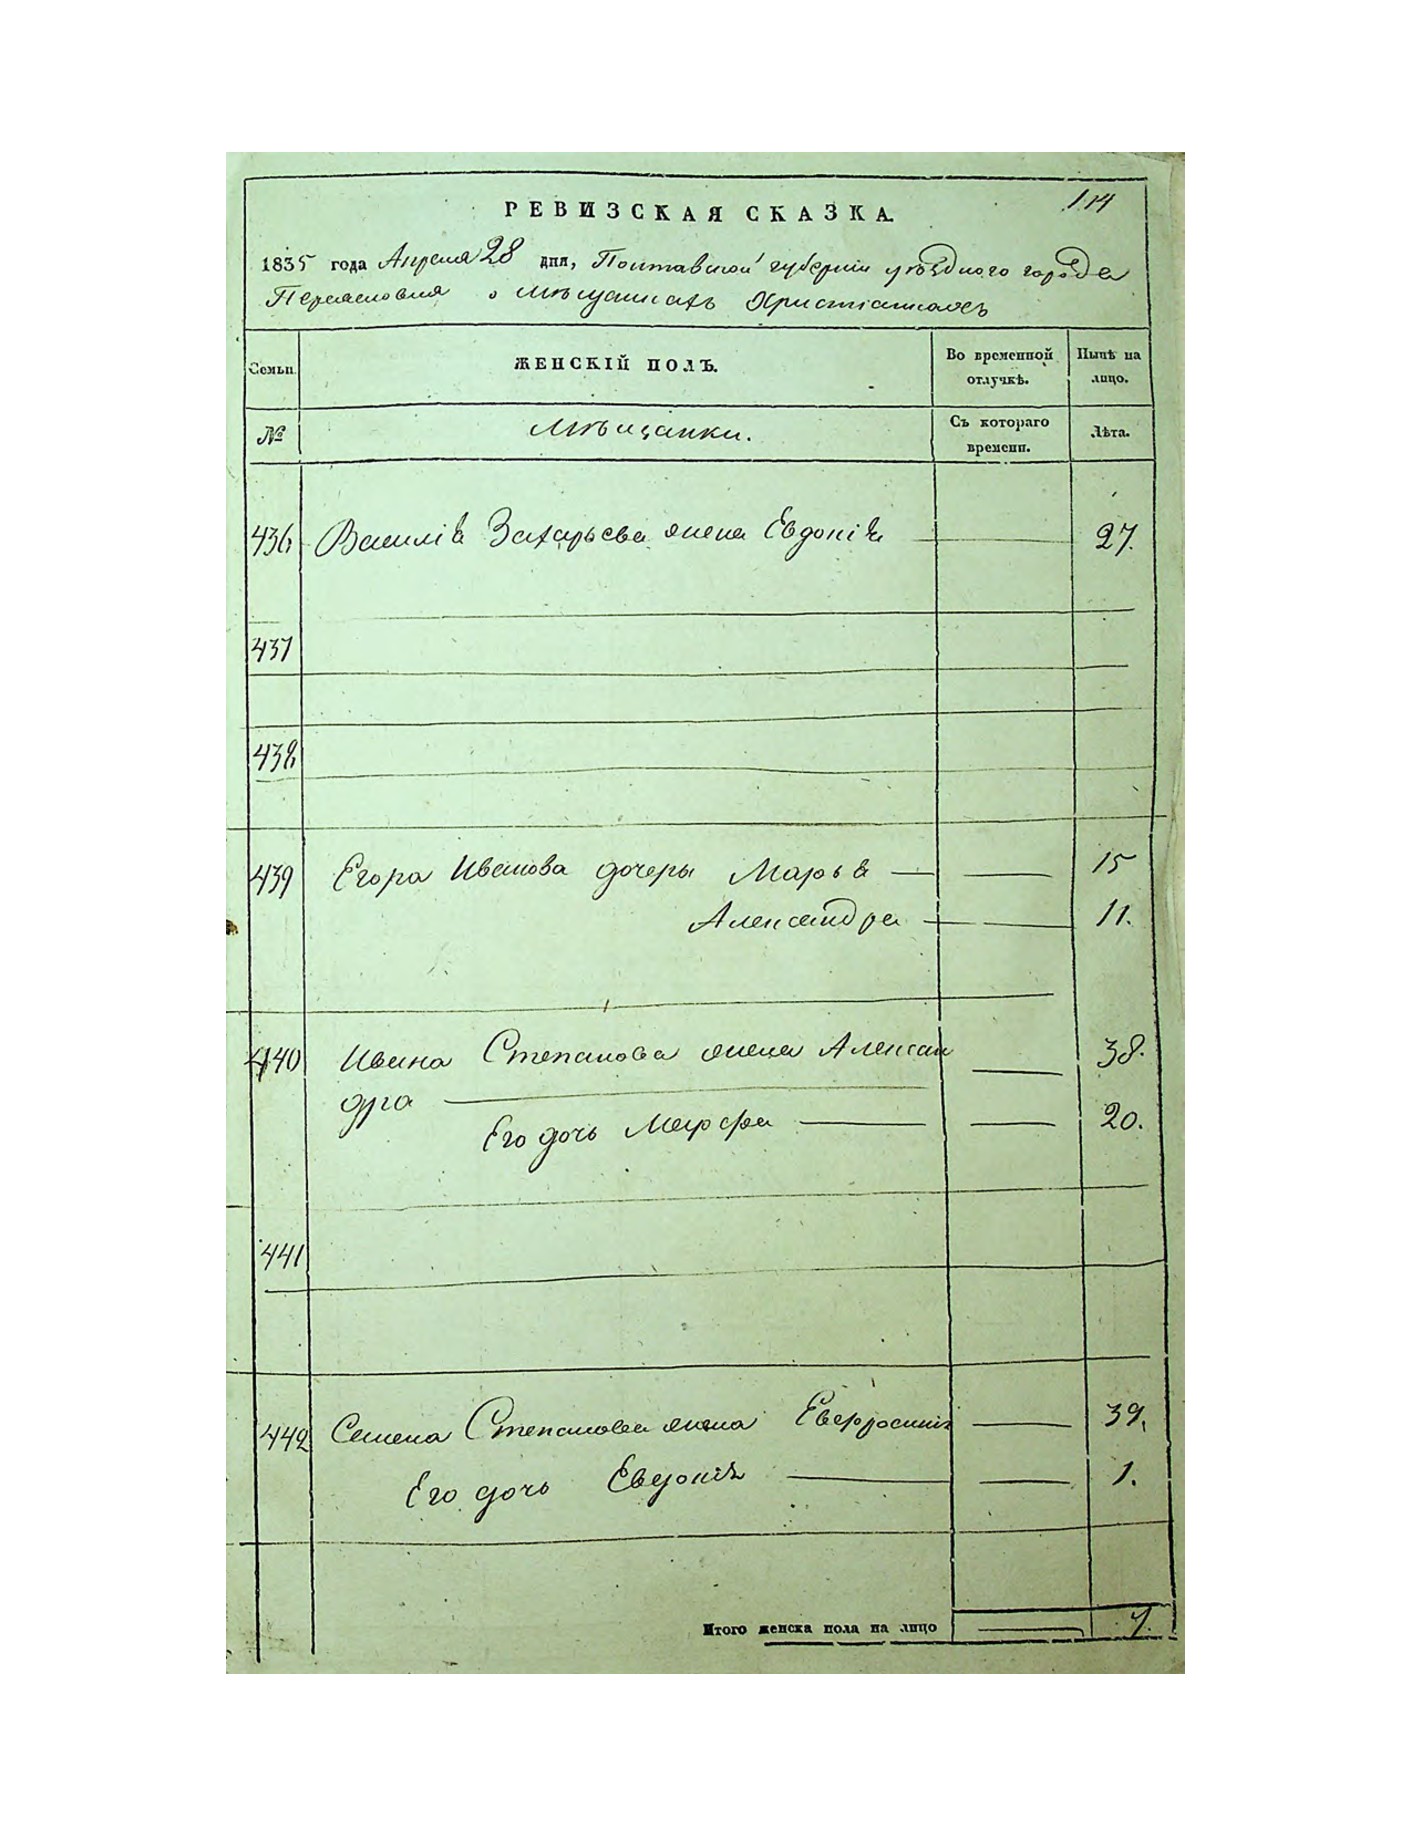 114
РЕВИЗСКАЯ СКАЗКА.
1835 года Апреля 28 дня, Полтавской губерніи уѣзднаго города
Переяславля о мѣщанахъ Христіанахъ
Семьи. ЖЕНСКІЙ ПОЛЪ. Во временной отлучкѣ. Нынѣ на лицо.
№ Мѣщанки. Съ котораго времени. Лѣта.
436 Василія Захарьева жена Евдокія 27.
437
438
439 Егора Иванова дочеры Марья 15
Александра 11.
440 Ивана Степанова жена Алексан 38.
дра
Его дочь Марфа 20.
441
442 Семена Степанова жена Евфросинія 39.
Его дочь Евдокія 1.
Итого женска пола на лицо 7.